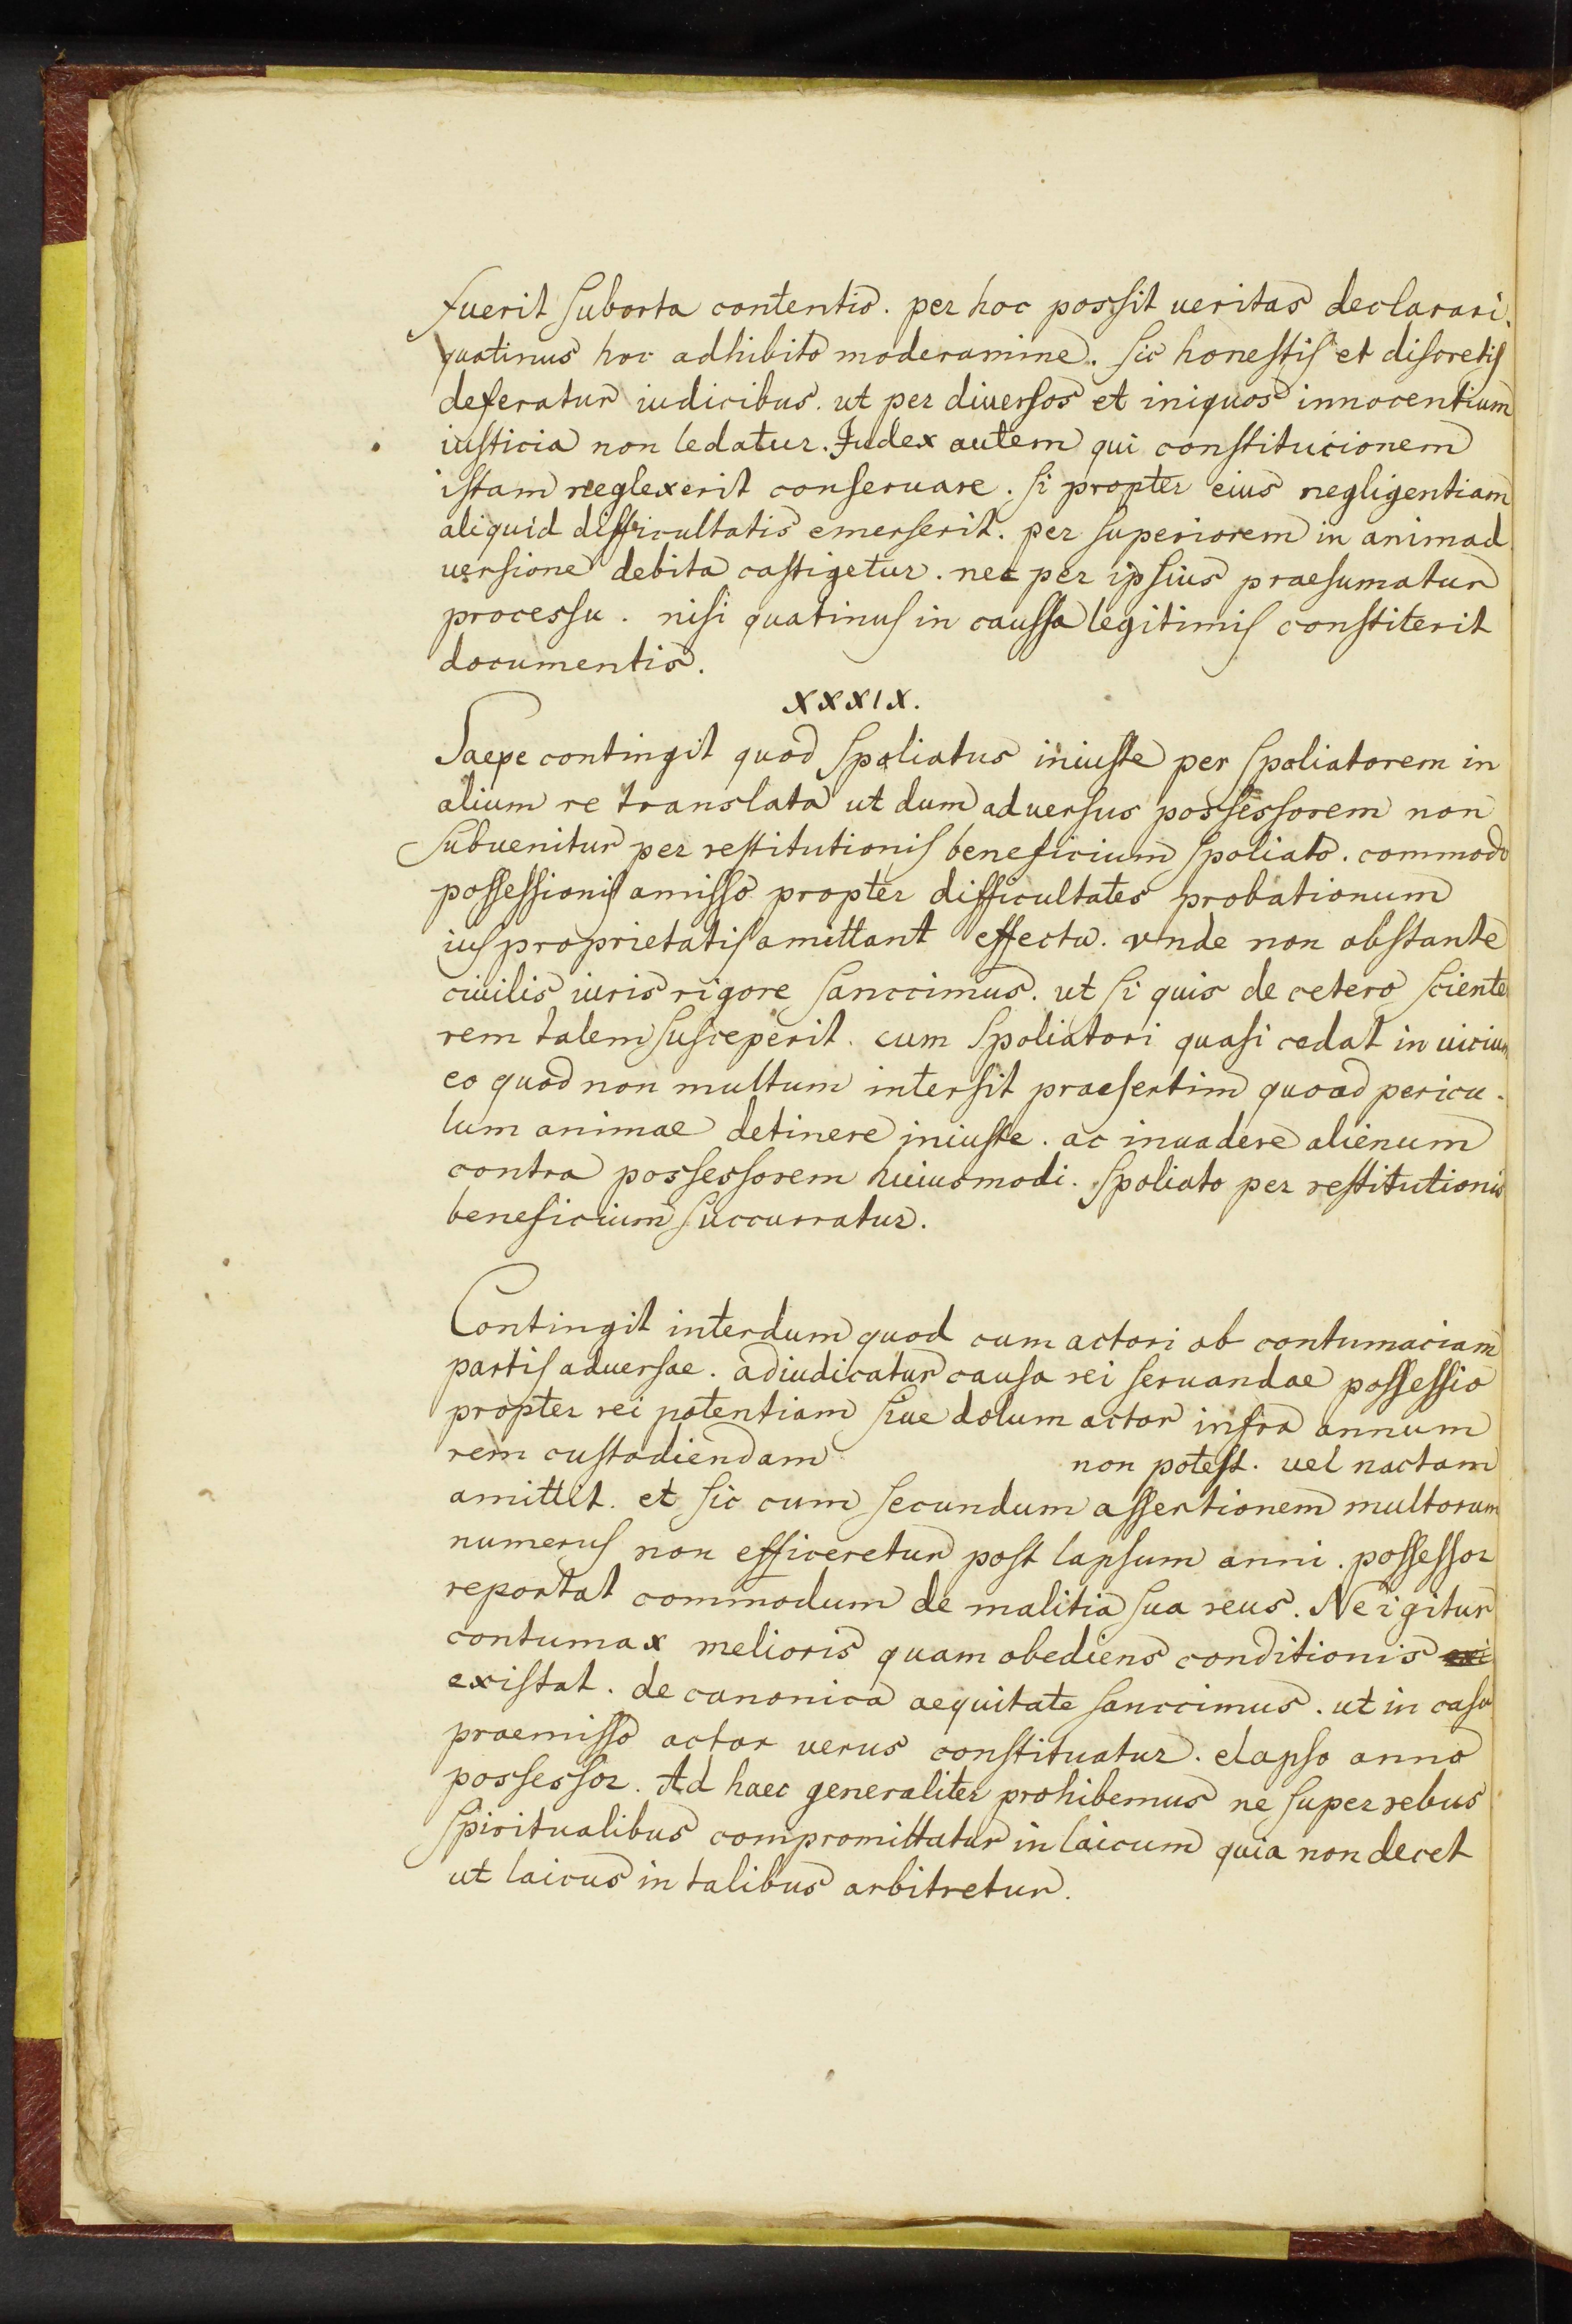 fuerit suborta contentio. per hoc possit ueritas declarari.
quatinus hoc adhibito moderamine. sic honestis et discretis
deferatur iudicibus. ut per diuersos et iniquos innocentium
iusticia non ledatur. Iudex autem qui constitucionem
istam neglexerit conseruare. si propter eius negligentiam
aliquid difficultatis emerserit. per superiorem in animad
uersione debita castigetur. nec per ipsius praesumatur
processu. nisi quatinus in caussa legitimis constiterit
documentis.
XXXIX.
Saepe contingit quod spoliatus iniuste per spoliatorem in
alium re translata ut dum aduersus possessorem non
subuenitur per restitutionis beneficium spoliato. commodo
possessionis amisso propter difficultates probationum
ius proprietatis amittant effectu. vnde non obstante
ciuilis iuris rigore sanccimus. ut si quis de cetero sciente
rem talem susceperit. cum spoliatori quasi cedat in uicium
eo quod non multum intersit praesertim quoad pericu-
lum animae detinere iniuste. ac inuadere alienum
contra possessorem huiusmodi. spoliato per restitutionis
beneficium succurratur.
Contingit interdum quod cum actori ob contumaciam
partis aduersae. adiudicatur causa rei seruandae possessio
propter rei potentiam siue dolum actor infra annum
rem custodiendam non potest. uel nactam
amittit. et sic cum secundum assertionem multorum
numerus non efficeretur post lapsum anni. possessor
reportat commodum de malitia sua reus. Ne igitur
contumax melioris quam obediens conditionis exi
existat. de canonica aequitate sanccimus. ut in casu
praemisso actor uerus constituatur. elapso anno
possessor. Ad haec generaliter prohibemus ne super rebus
spiritualibus compromittatur in laicum quia non decet
ut laicus in talibus arbitretur.